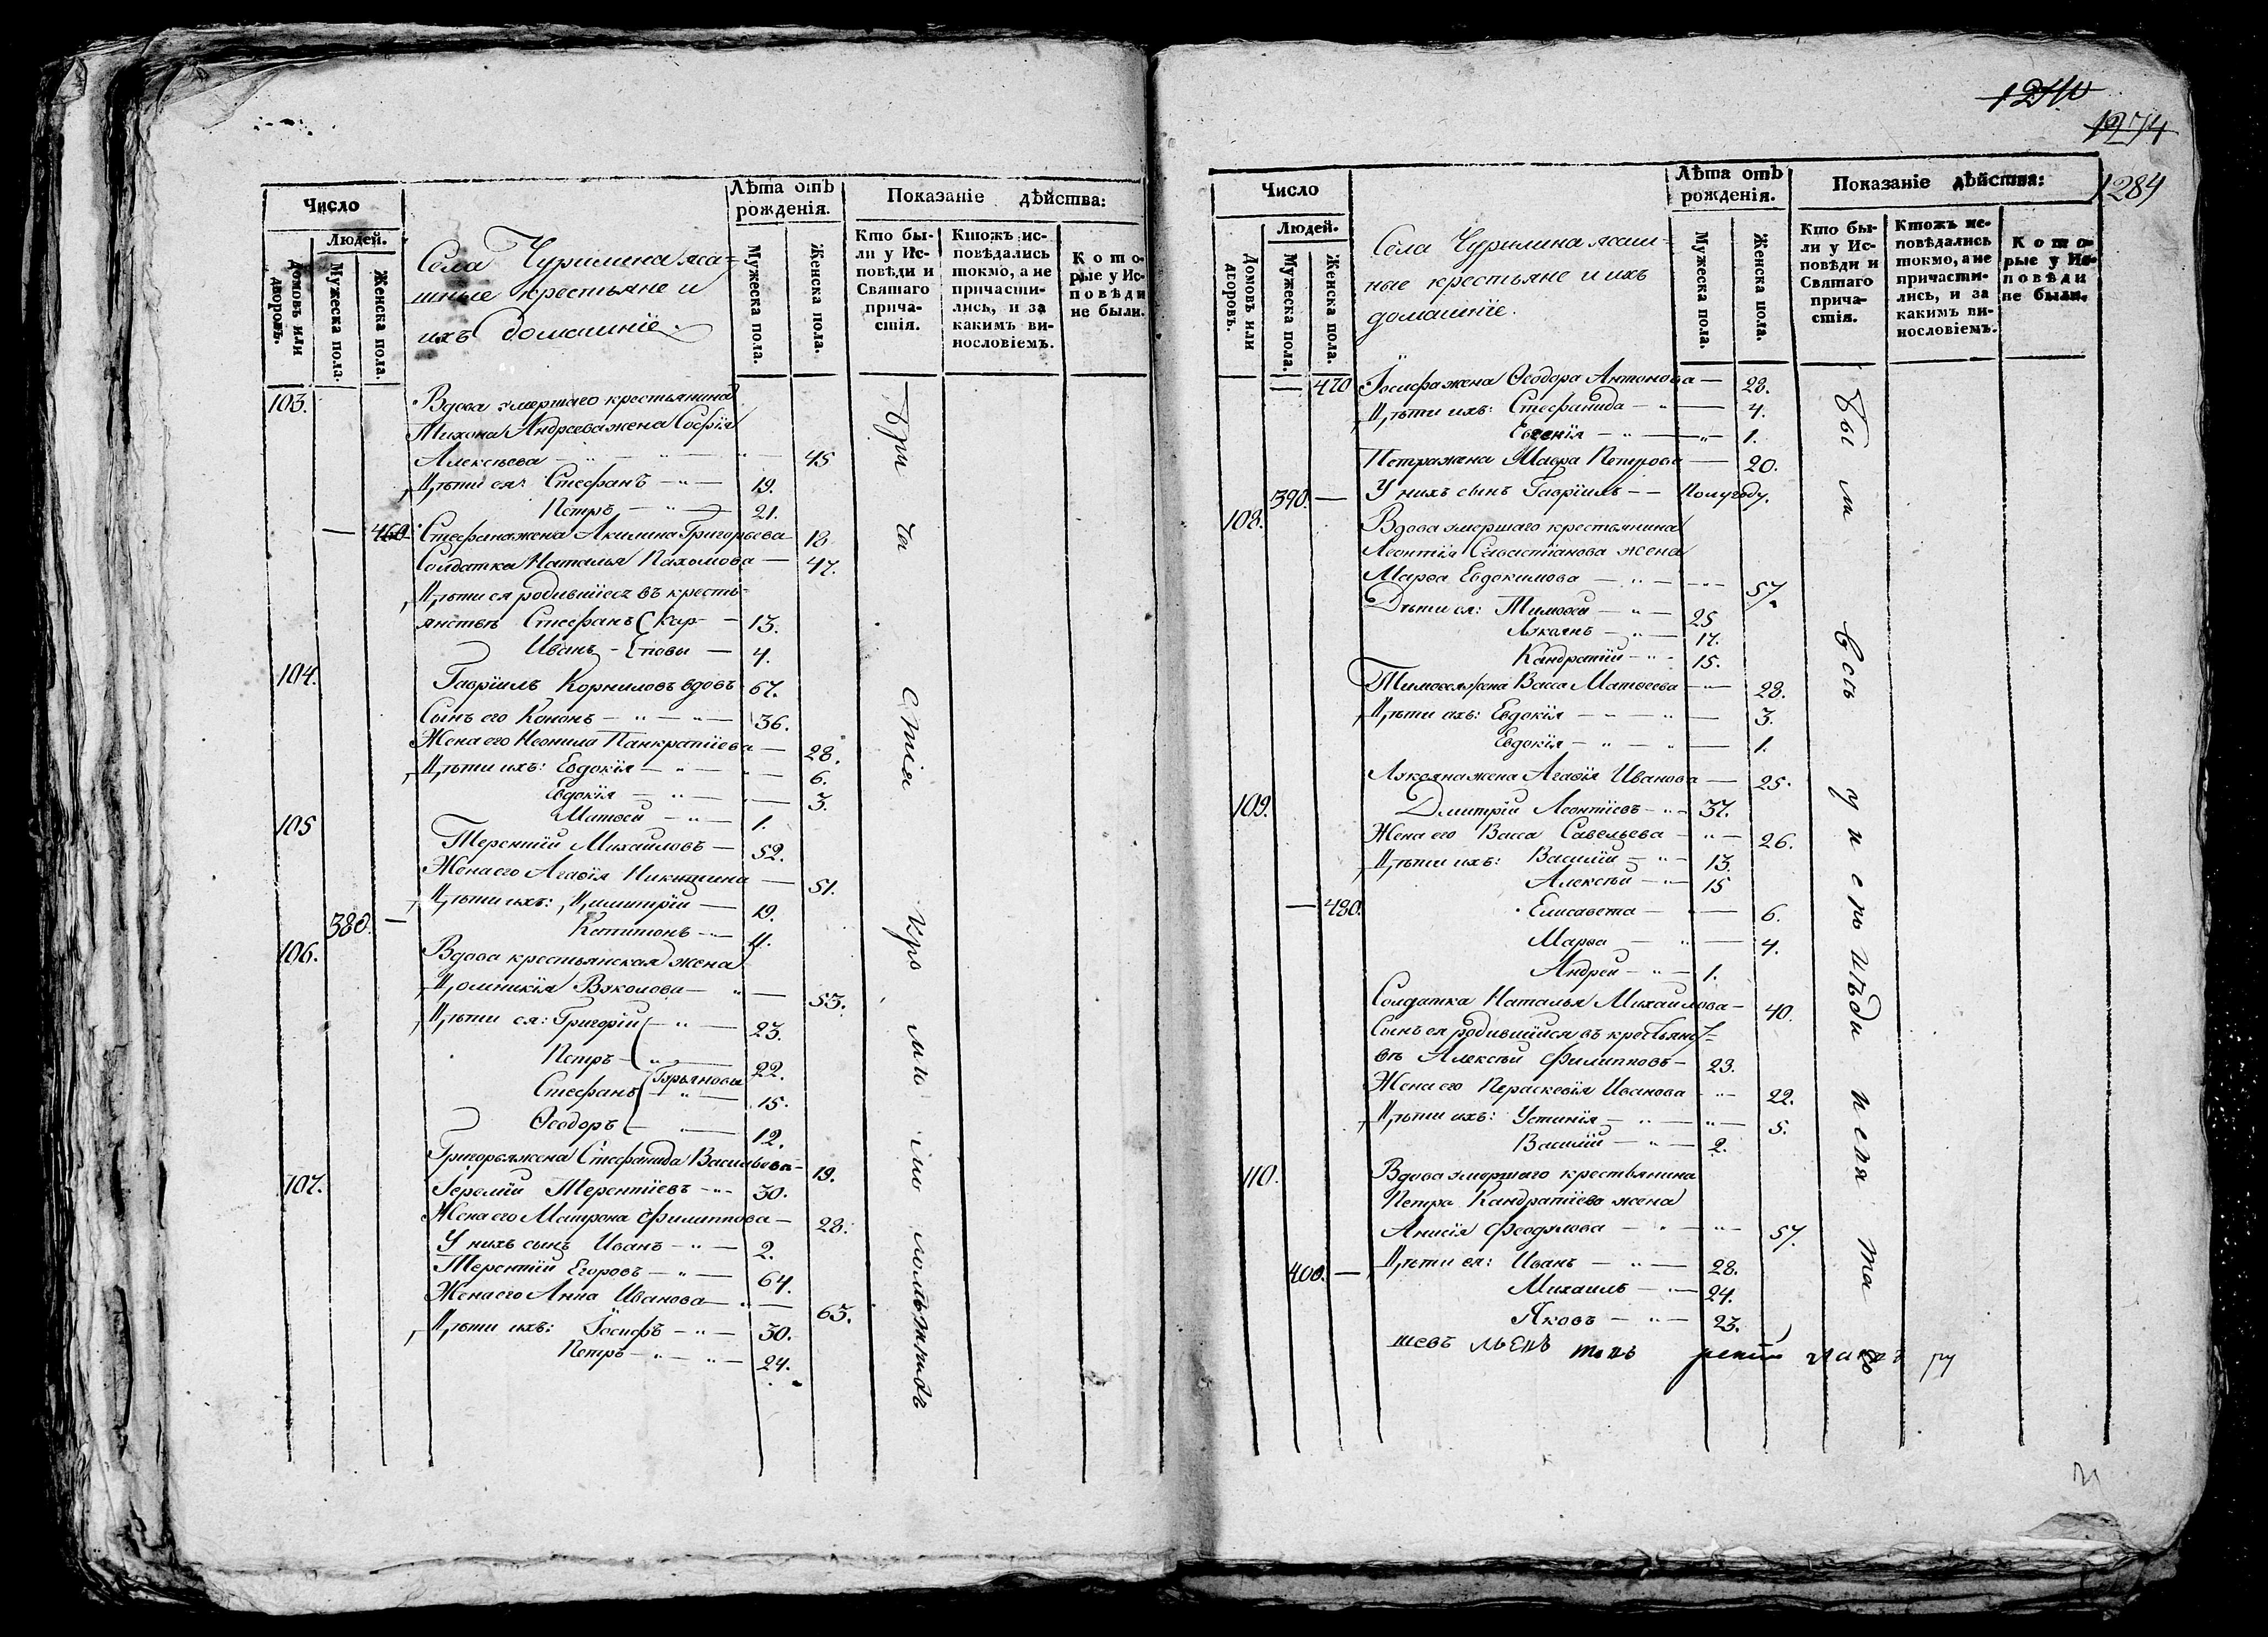 Число
Людей.
Домовъ или дворовъ.
Мужеска пола.
Женска пола.
Села Чурилина яса-
шные крестьяне и
ихъ домашніе.
Лѣта отъ рожденія.
Мужеска пола.
Женска пола.
Показаніе дѣйства:
Кто бы-
ли у Ис-
повѣди и
Святаго
прича-
стія.
Ктожъ ис-
повѣдались
токмо, а не
причасти-
лись, и за
какимъ ви-
нословіемъ.
Кото-
рые у Ис-
повѣди
не были.
103. Вдова умершаго крестьянина
Тихона Андреева жена Софія
Алексѣева 45
Дѣти ея: Стефанъ 19.
Петръ 21.
460. Стефана жена Акилина Григорьева 18
Солдатка Наталья Пахомова 47.
Дѣти ея родившіеся въ кресть-
янствѣ Стефанъ Кар- 13.
Иванъ повы 4.
104. Гавріилъ Корниловъ вдовъ 67.
Сынъ его Кононъ 36.
Жена его Неонила Панкратіева 28.
Дѣти ихъ: Евдокія 6.
Евдокія 3.
Матѳей 1.
105 Терентій Михайловъ 52.
Жена его Агаѳія Никитина 51.
Дѣти ихъ: Димитрій 19.
380. Капитонъ 11.
106. Вдова крестьянская жена
Домникія Вуколова 53.
Дѣти ея: Григорій 23.
Петръ 22.
Гурьяновы
Стефанъ 15.
Ѳеодоръ 12.
Григорья жена Стефанида Васильева 19.
107. Іеремій Терентіевъ 30.
Жена его Матрона Филиппова 28.
У нихъ сынъ Иванъ 2.
Терентій Егоровъ 64.
Жена его Анна Иванова 63.
Дѣти ихъ: Іосифъ 30.
Петръ 24.
1274
1284
Число
Людей.
Домовъ или дворовъ.
Мужеска пола.
Женска пола.
Села Чурилина ясаш-
ные крестьяне и ихъ
домашніе.
Лѣта отъ рожденія.
Мужеска пола.
Женска пола.
Показаніе дѣйства:
Кто бы-
ли у Ис-
повѣди и
Святаго
прича-
стія.
Ктожъ ис-
повѣдались
токмо, а не
причасти-
лись, и за
какимъ ви-
нословіемъ.
Кото-
рые у Ис-
повѣди
не были.
470 Іосифа жена Ѳеодора Антонова 28.
Дѣти ихъ: Стефанида 4.
Евгенія 1.
Петра жена Мавра Петрова 20.
390. У нихъ сынъ Гавріилъ Полугоду.
108. Вдова умершаго крестьянина
Леонтія Савастіанова жена
Марѳа Евдокимова 57.
Дѣти ея: Тимоѳей 25
Лукіянъ 17.
Кандратій 15.
Тимоѳея жена Васса Матвеева 28.
Дѣти ихъ: Евдокія 3.
Евдокія 1.
Лукіяна жена Агаѳія Иванова 25.
109. Дмитрій Леонтіевъ 37.
Жена его Васса Савельева 26.
Дѣти ихъ: Василій 13.
Алексѣй 15
480. Елисавета 6.
Марѳа 4.
Андрей 1.
Солдатка Наталья Михайлова 40.
Сынъ ея родившійся въ крестьянст-
вѣ Алексѣй Филипповъ 23.
Жена его Параскевія Иванова 22.
Дѣти ихъ: Устинія 5.
Василій 2.
110. Вдова умершаго крестьянина
Петра Кандратіева жена
Анисія Феодулова 57.
400. Дѣти ея: Иванъ 28.
Михаилъ 24.
Яковъ 23.